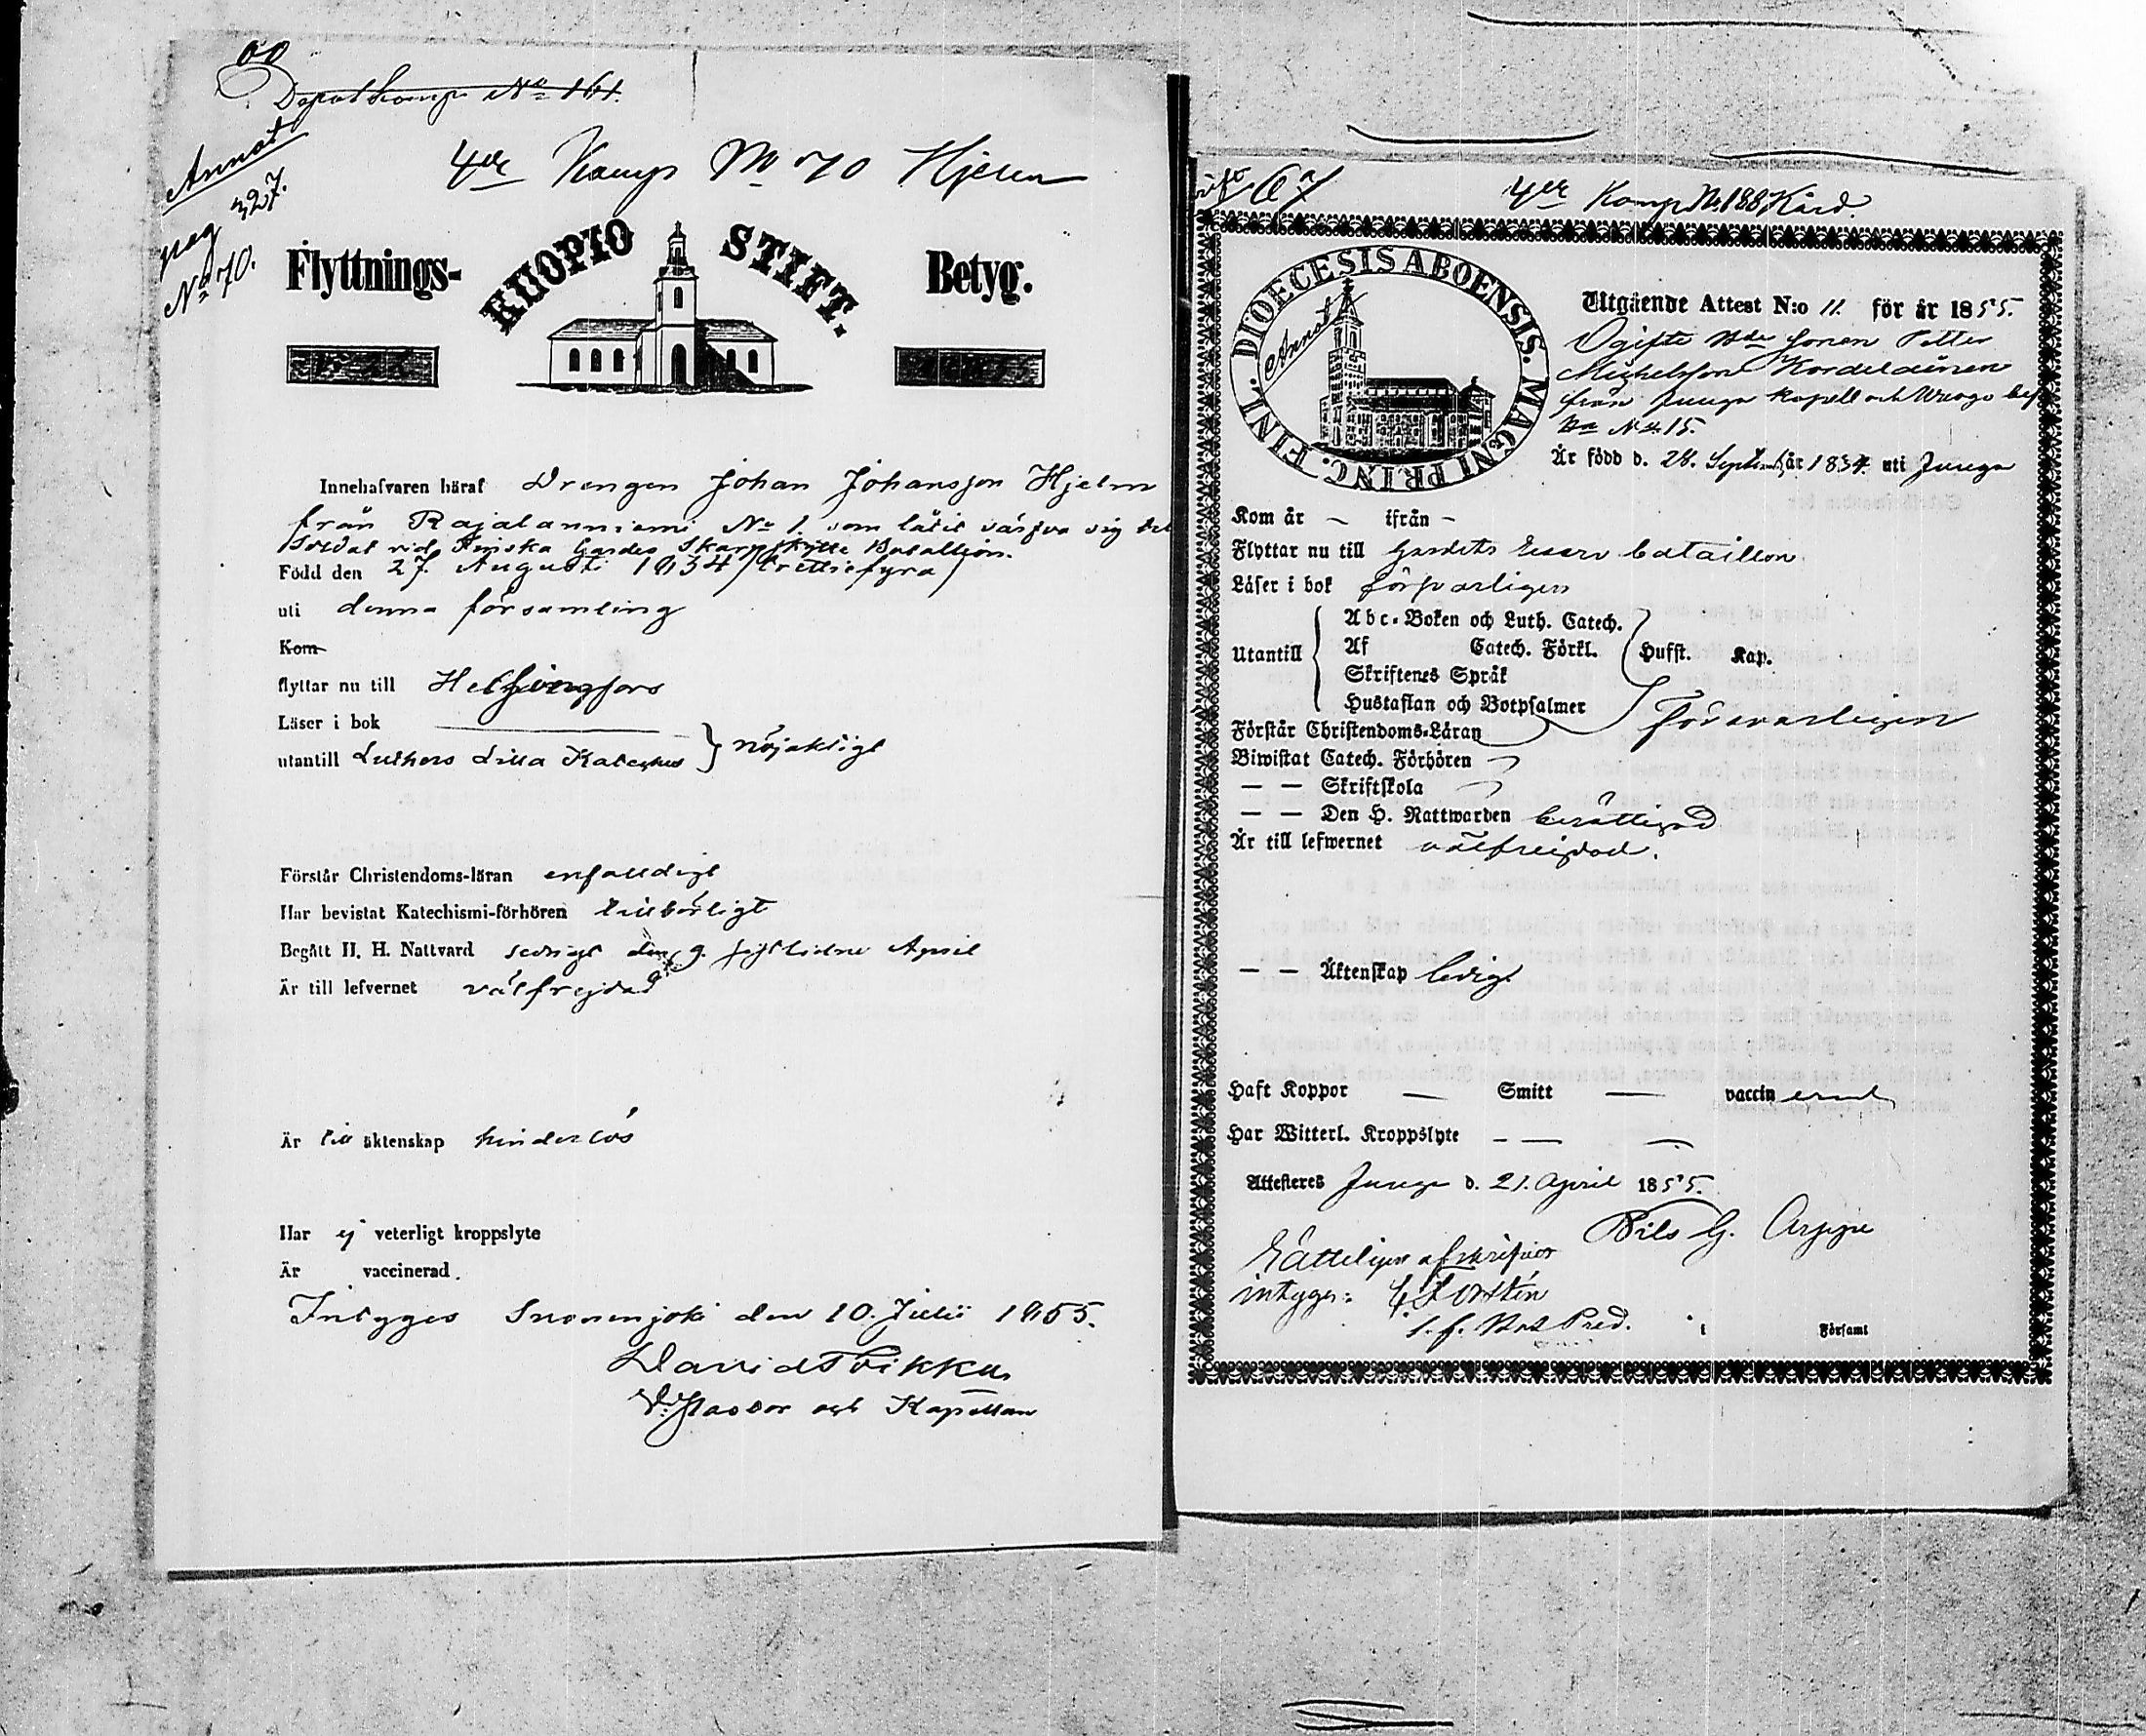 60
Depotkomp. No 161.
Annot
pag 327.
No 70.
4de Komp No 70 Hjelm
Flyttnings- KUOPIO STIFT. Betyg.
Innehafvaren häraf Drengen Johan Johansson Hjelm
från Rajalanniemi No 1. som låtit värfva sig till
Soldat vid Finska Gardes Skarpskytte Bataillon.
Född den 27 Augusti 1834 (trettiofyra)
uti denna församling
Kom
flyttar nu till Helsingfors
Läser i bok
utantill Luthers Lilla Kateches } nöjaktigt
Förstår Christendoms-läran enfalldigt
Har bevistat Katechismi-förhören tillbörligt
Begått H. H. Nattvard sednast den 9. sistlidne April
Är till lefvernet välfrejdad
Är till äktenskap hinderlös
Har ej veterligt kroppslyte
Är vaccinerad.
Intygges Suonenjoki den 10. Julii 1855.
David Toikka
V. Pastor och Kapellan
4de Komp No. 188 Kård.
DIOECESIS ABOENSIS. MAGNI PRINC. FINL.
Annot
Utgående Attest N:o 11. för år 1855.
Ogifte Bde sonen Petter
Michelsson Kordelainen
från Junga kapell och
No 15.
Är född d. 28. Septemb. år 1834. uti Junga
Kom år – ifrån –
Flyttar nu till Gardets Reserv bataillon.
Läser i bok försvarligen
Utantill
Abc-Boken och Luth. Catech.
Af Catech. Förkl. Hufst. Kap.
Skriftenes Språk
Hustaflan och Botpsalmer
Försvarligen
Förstår Christendoms-Läran
Biwistat Catech. Förhören
— — Skriftskola
— — Den H. Nattwarden berättigad
Är till lefwernet välfrejdad.
— — Äktenskap ledig
Haft Koppor — Smitt — vaccinerad
Har Witterl. Kroppslyte — —
Attesteres Junga d. 21. April 1855.
Nils G. Arppe
Rätteligen afskrifvet
intygar:
i Församl